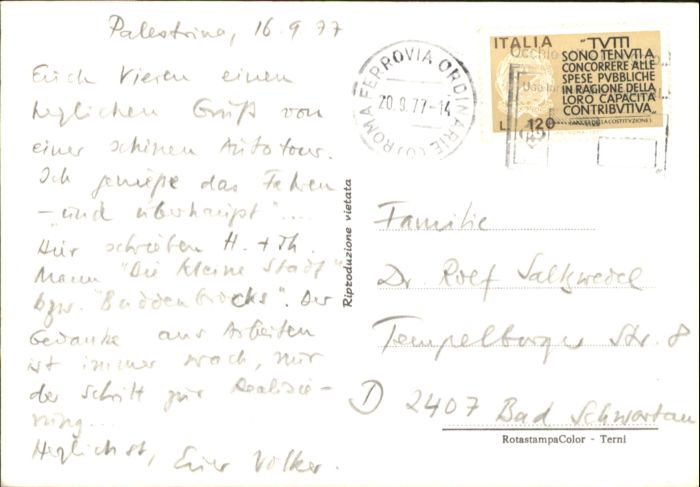 Palestrina, 16.9.77
Euch Vieren einen
herzlichen Gruß von
einer schönen Autotour.
Ich genieße das Fahren
- "und überhaupt"....
Hier schrieben H. + Th.
Mann "Die kleine Stadt"
bzw. "Buddenbrooks". Der
Gedanke ans Arbeiten
ist immer wach, nur
der Schritt zur Realisie-
rung...
Herzlichst, Euer Volker.
Riproduzione vietata
ROMA FERROVIA ORDINARIE
20.9.77-14
ITALIA
"TVTTI
SONO TENVTI A
CONCORRERE ALLE
SPESE PVBBLICHE
IN RAGIONE DELLA
LORO CAPACITA
CONTRIBVTIVA„
L. 120
Familie
Dr. Rolf Saltzwedel
Tempelburger Str. 8
D 2407 Bad Schwartau
RotastampaColor - Terni